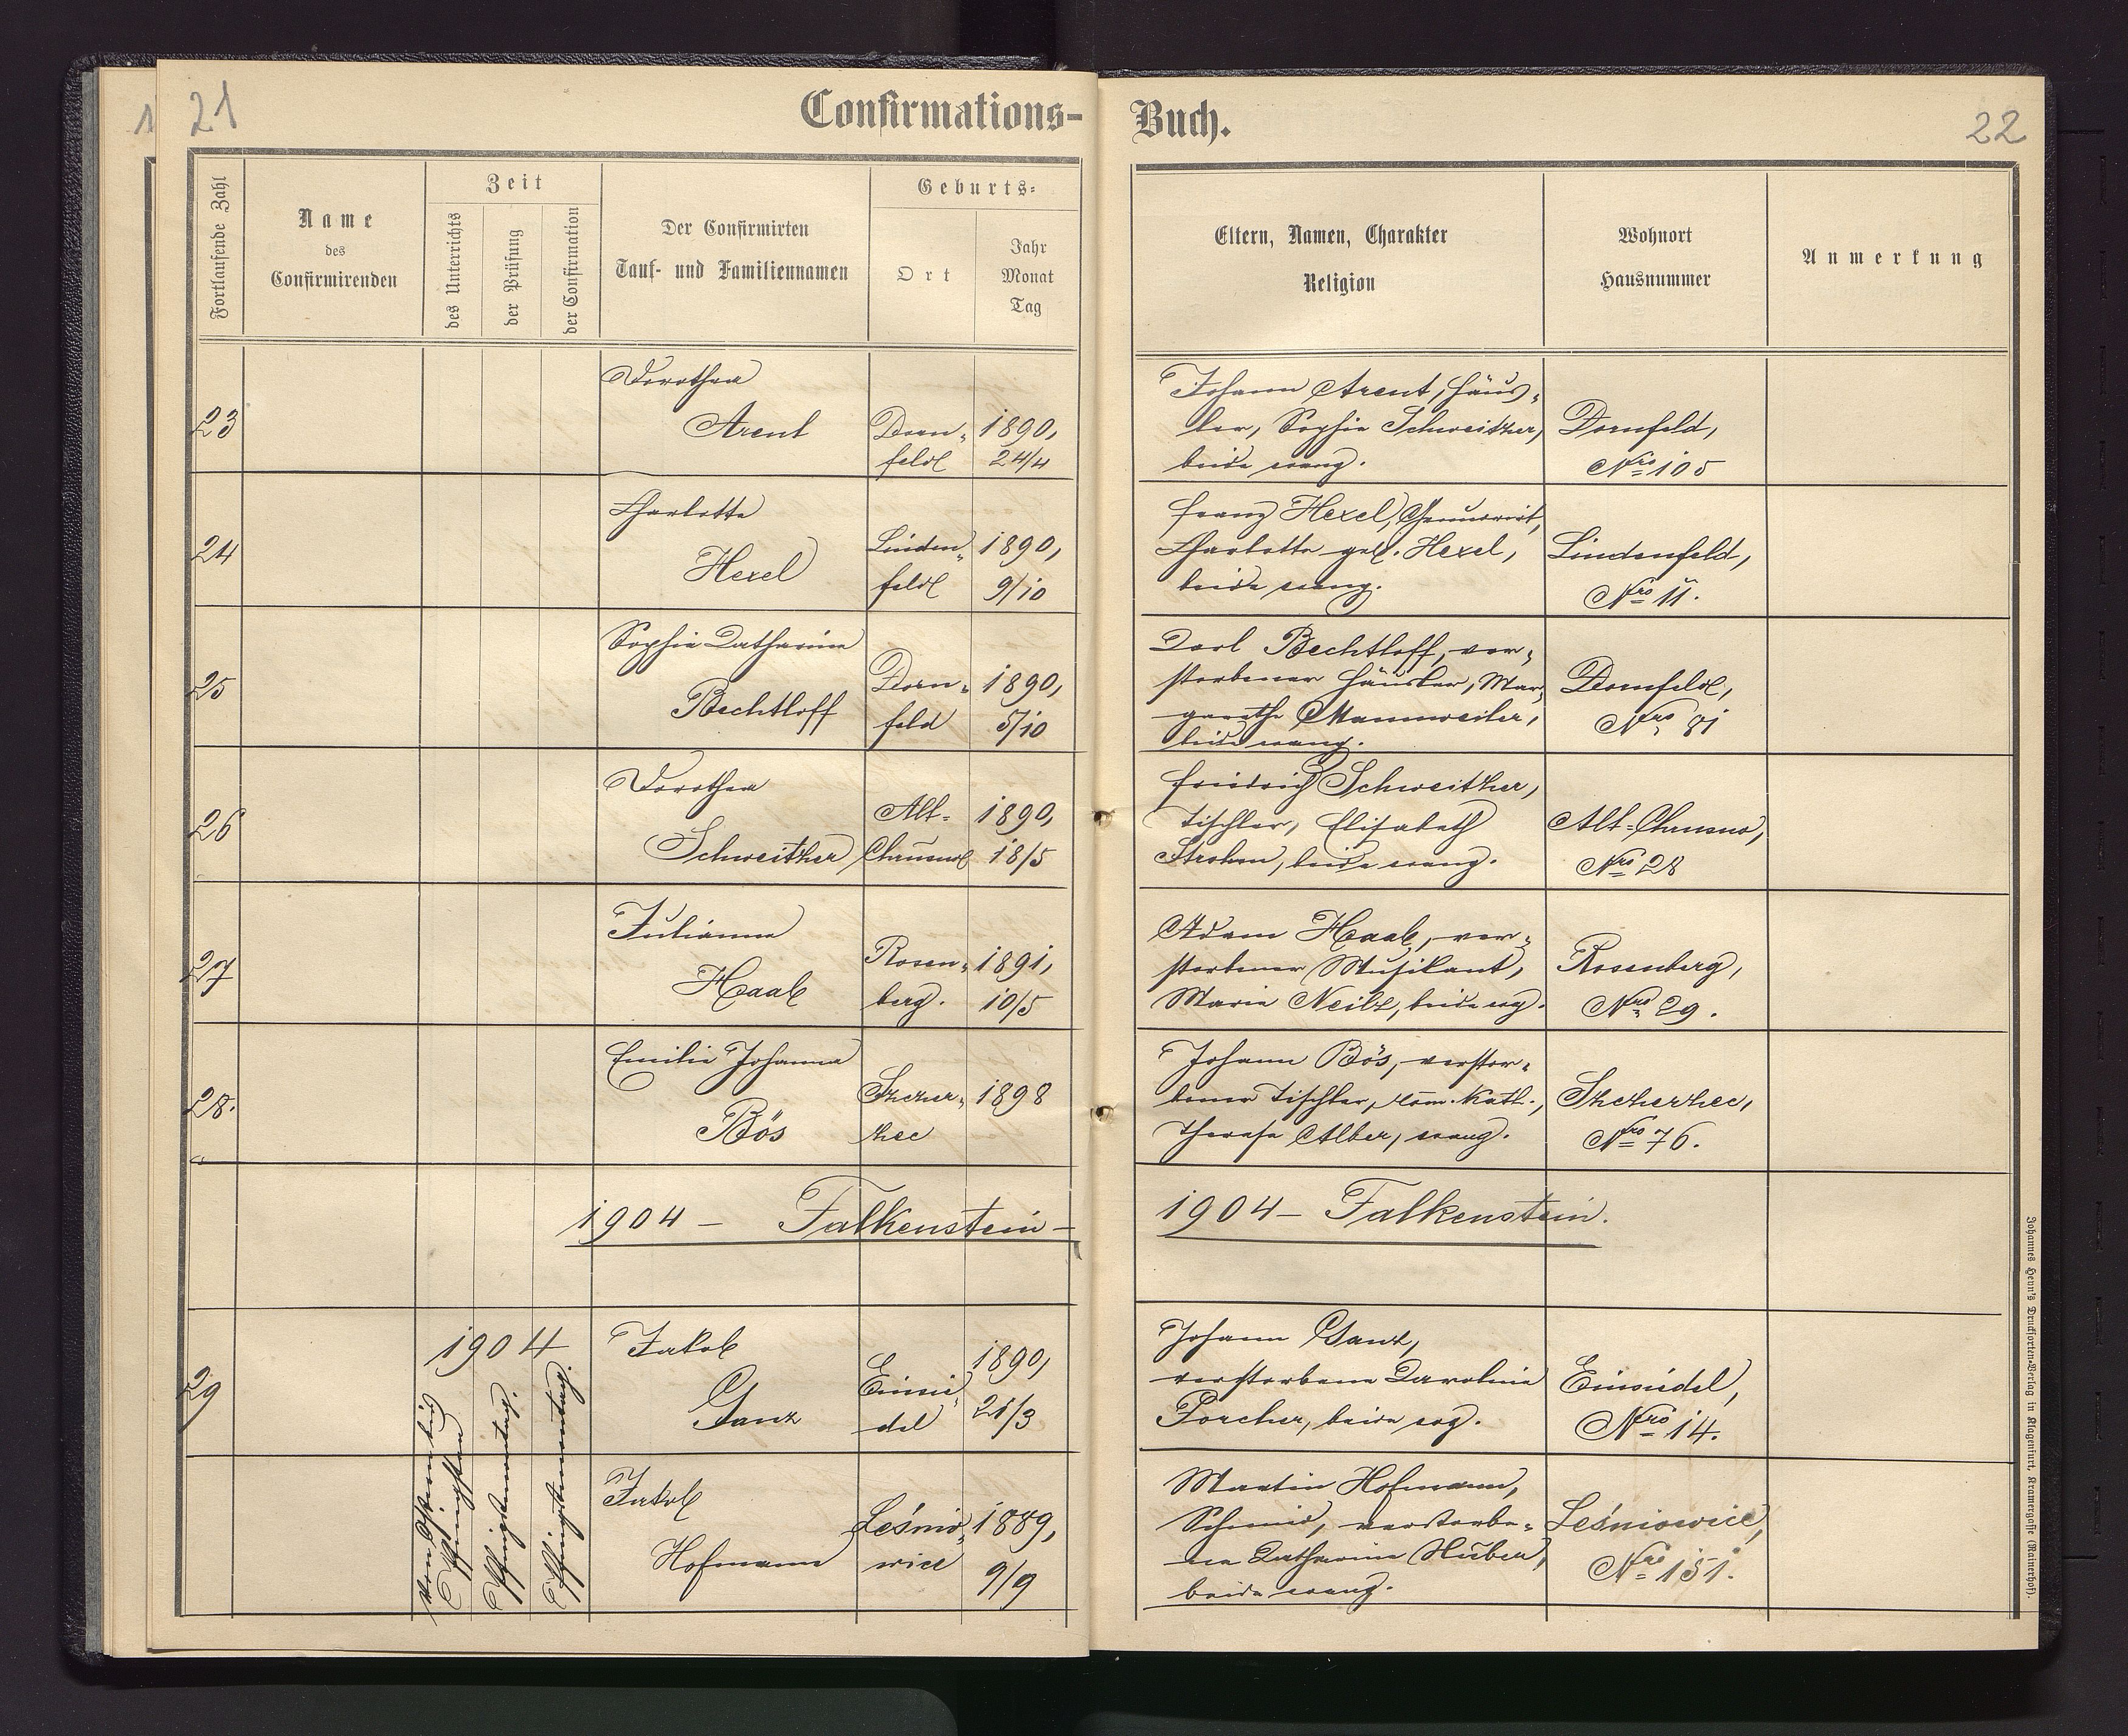 1
21
Confirmations-
Buch.
22
Fortlaufende Zahl
Name
des
Confirmirenden
Zeit
des Unterrichts
der Prüfung
der Confirmation
Der Confirmirten
Tauf- und Familiennamen
Geburts-
Ort
Jahr
Monat
Tag
Eltern, Namen, Charakter
Religion
Wohnort
Hausnummer
Anmerkung
23
Dorothea
Arent
Dorn-
feld
1890,
24/4
Johann Arent, Häus-
ler, Sophie Schweitzer,
beide evang.
Dornfeld,
Nro 105
24
Charlotte
Hexel
Linden-
feld
1890,
9/10
Franz Hexel, Grundwirt,
Charlotte geb. Hexel,
beide evang.
Lindenfeld,
Nro 11.
25
Sophie Catharine
Bechtloff
Dorn-
feld
1890,
5/10
Carl Bechtloff, ver-
storbener Häusler, Mar-
garethe Mannweiler,
beide evang.
Dornfeld,
Nro 81
26
Dorothea
Schweitzer
Alt-
Chrusno
1890,
18/5
Friedrich Schweitzer,
Tischler, Elisabeth
Strohm, beide evang.
Alt-Chrusno,
Nro 28
27
Julianna
Haab
Rosen-
berg.
1891,
10/5
Adam Haab, ver-
storbener Musikant,
Marie Neils, beide evg.
Rosenberg,
Nro 29.
28.
Emilie Johanna
Bös
Szczer-
zec
1898
Johann Bös, verstor-
bener Tischler, röm. kath.,
Therese Alber, evang.
Szczerzec,
Nro 76.
1904 – Falkenstein –
1904 – Falkenstein.
29
1904
von Ostern bis
Pfingsten
Pfingstmontag.
Pfingstmontag.
Jakob
Ganz
Einsie-
del
1890,
21/3
Johann Ganz,
verstorbene Caroline
Porcher, beide evg.
Einsiedel,
Nro 14.
Jakob
Hofmann
Leśnio-
wice
1889,
9/9
Martin Hofmann,
Schmied, verstorbe-
ne Catharine Huber,
beide evang.
Leśniowice,
Nro 151.
Johannes Heyn's Drucksorten-Verlag in Klagenfurt, Kramergasse (Rainerhof).